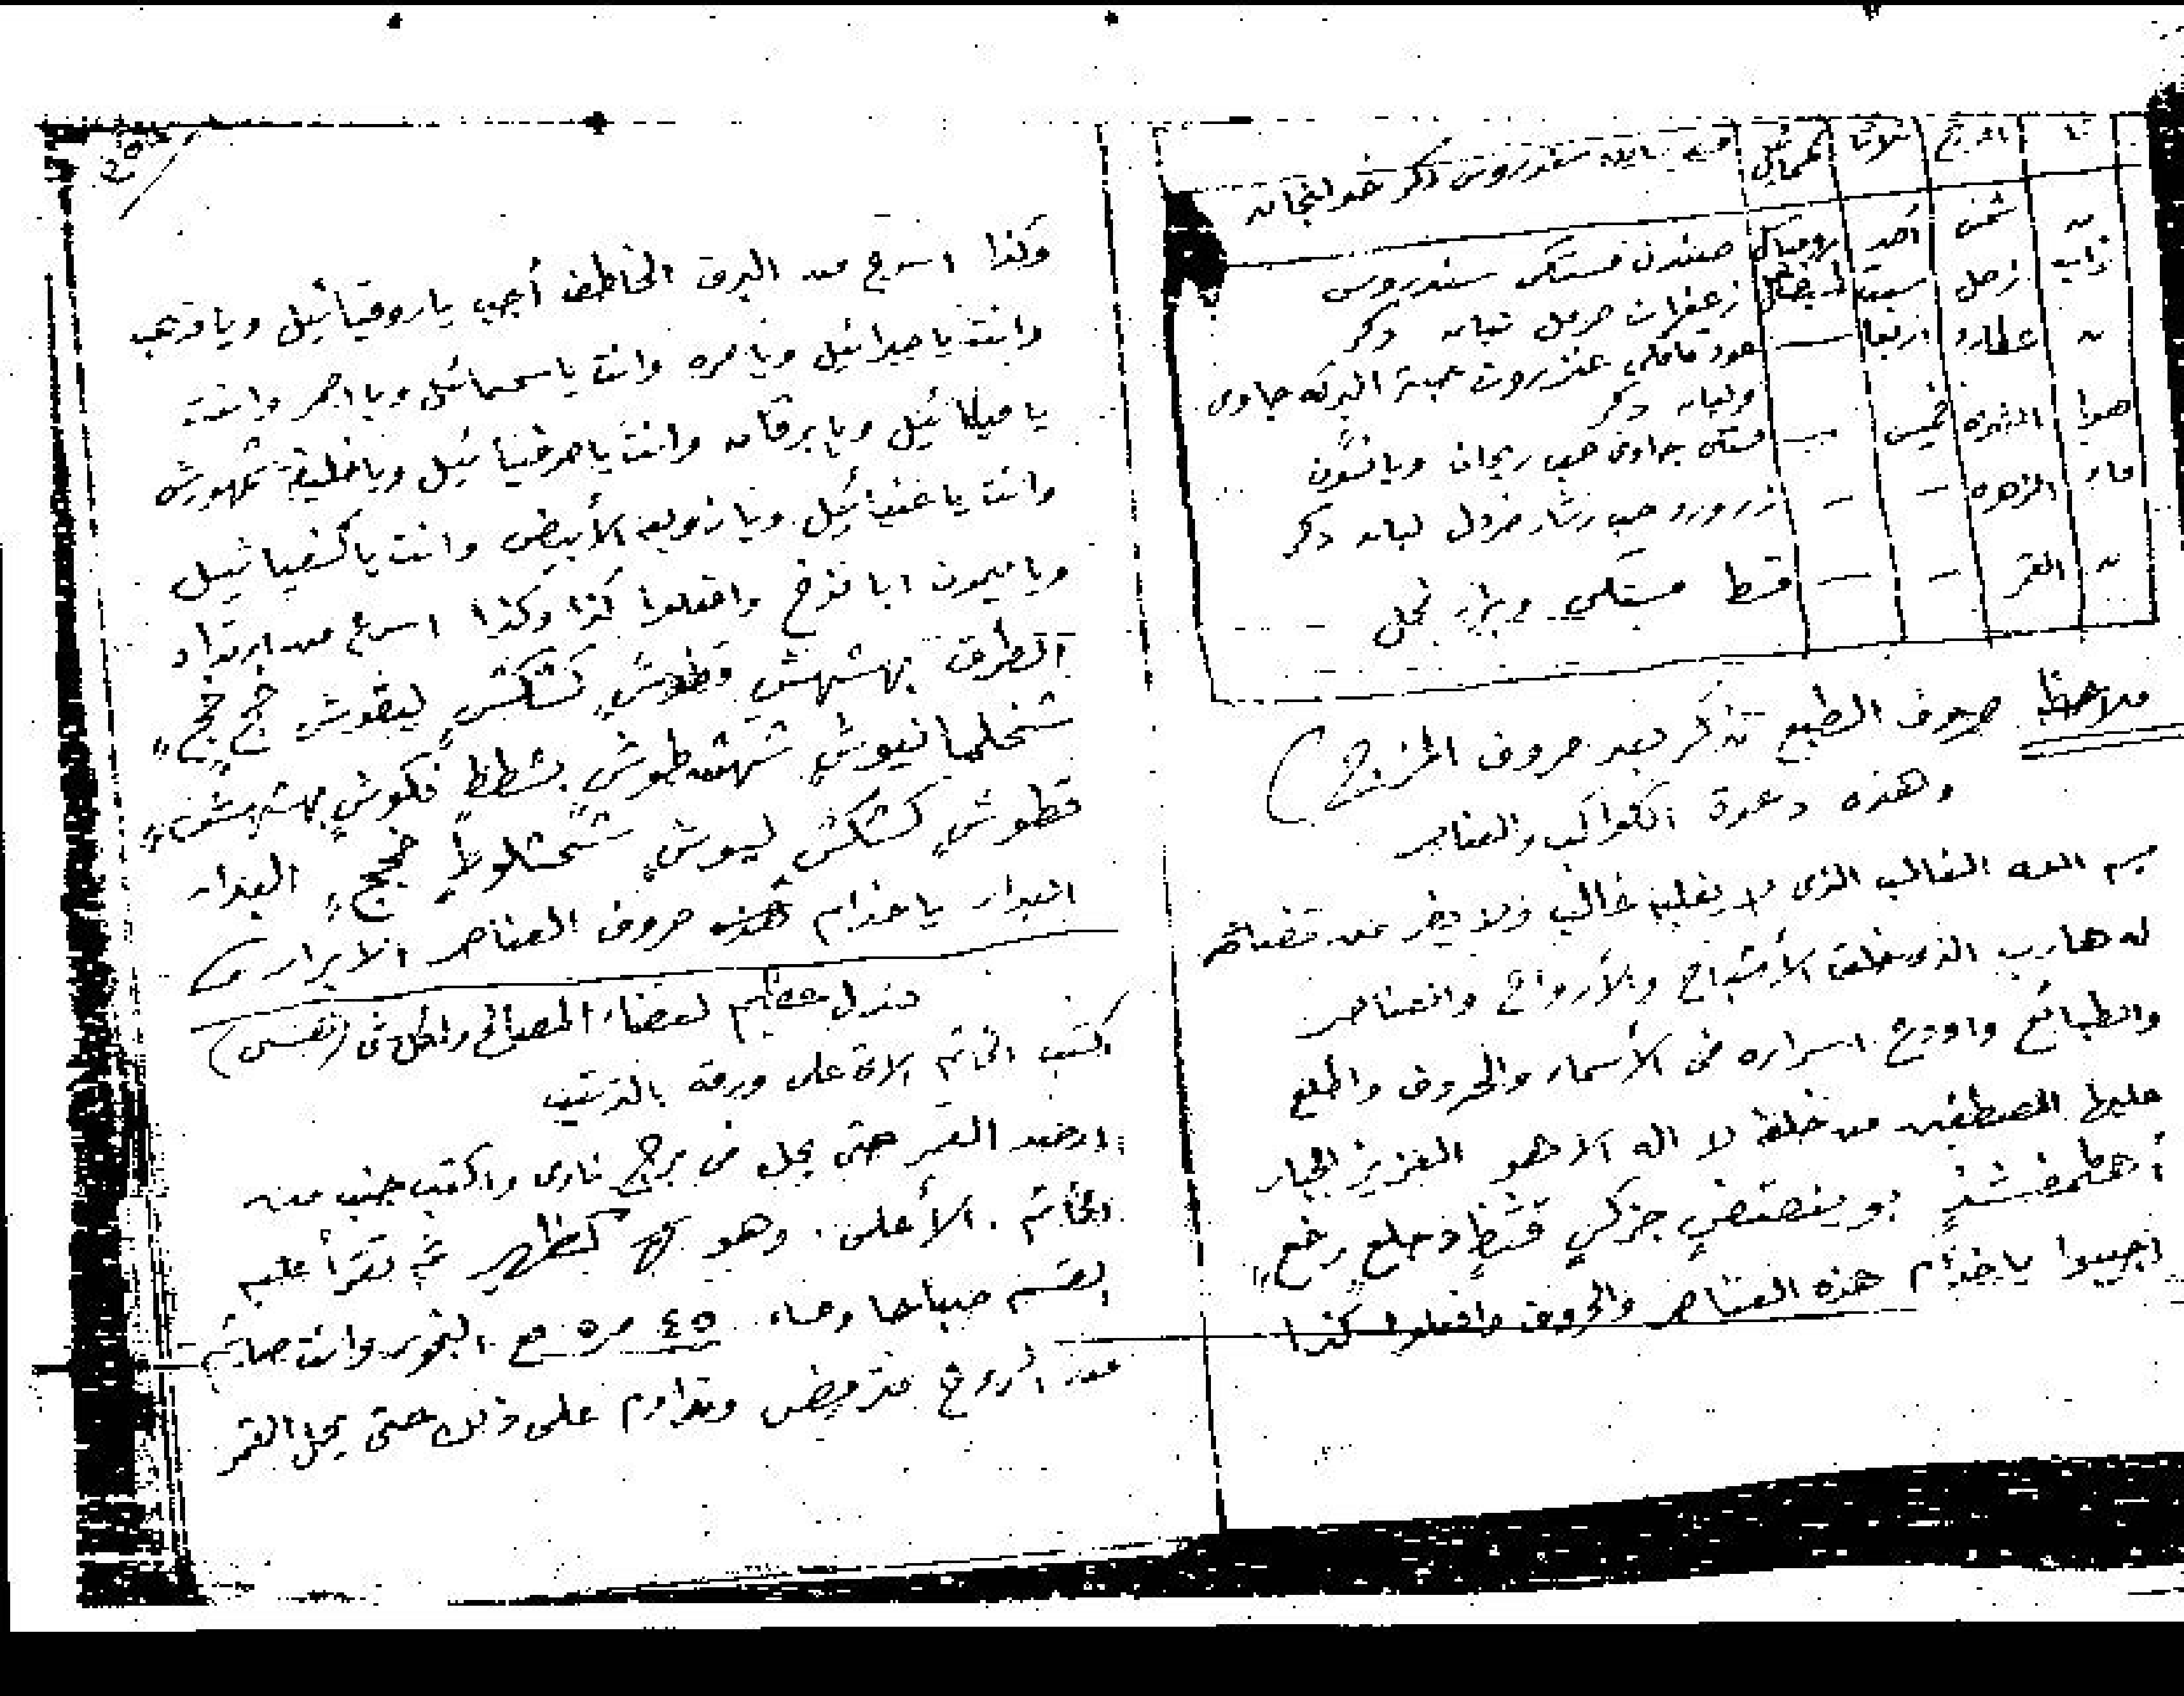 نار المريخ ثلاثا سمسائيل سندروس ذكر خولنجان
شمس أحد روقيائيل صندل مستكى سندروس
تراب زحل سبت كسفيائيل زعفران حرمل لبان ذكر
عطارد اربعا — عود قاقلى عنزروت عجينة البركه جاوى
ولبان ذكر
هوا المشترى خميس — مستكى جاوى حب ريحان ويانسون
ماء الزهره — — زر ورد حب رشاد خردل لبان ذكر
القمر — — قسط مستكى وبزر فجل
ملاحظه حروف الطبع تذكر بعد حروف المزج )
وهذه دعوة الكواكب والعناصر
بسم الله الغالب الذى لا يغلبه غالب ولا يفر من قضائه
له هارب الذى خلق الأشباح والأرواح والعناصر
والطبائع واودع اسراره فى الأسماء والحروف واطلع
عليها المصطفين من خلقه لا اله الا هو العزيز الجبار
أهطمفشذ بوينصتض جزكس قثظ دحلع رخغ
اجيبوا يا خدام هذه العناصر والحروف وافعلوا كذا
وكذا اسرع من البرق الخاطف أجب ياروقيائيل ويامذهب
وانت ياجبرائيل ويامره وانت ياسمسائيل ويااحمر وانت
ياميكائيل ويابرقان وانت ياصرفيائيل وياخليفة شمهورش
وانت ياعنيائيل ويازوبعه الأبيض وانت ياكسفيائيل
وياميمون ابا نوخ وافعلوا كذا وكذا اسرع من ارتداد
الطرف بهشهش قطوش كشكش ليقوش جج جج
شخلمانيوش شهشطوش بشطط فكوش بهشهشف
قطوش كشكش ليوش شحشلوط ججج البدار
البدار ياخدام هذه حروف العناصر الابرار
مندل عظيم لقضاء المصالح والكل شى (نفسى)
اكتب الخاتم الاتى على ورقه بالترتيب
ارصد القمر حتى يحل فى برج نارى واكتب جنب منه
الخاتم الأعلى وهو كظهير ثم تقرأ عليه
القسم صباحا ومساء ٤٥ مره مع البخور وانت صائم
عن الروح مترفض وتداوم على ذلك حتى يحل القمر